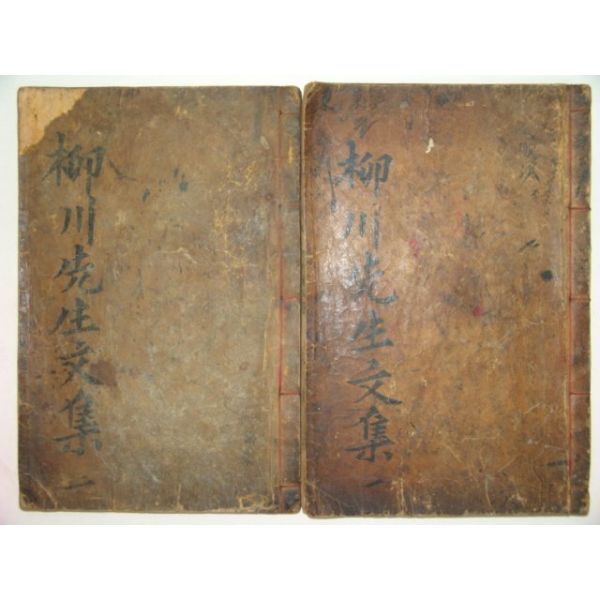 柳川先生文集 一
柳川先生文集 一